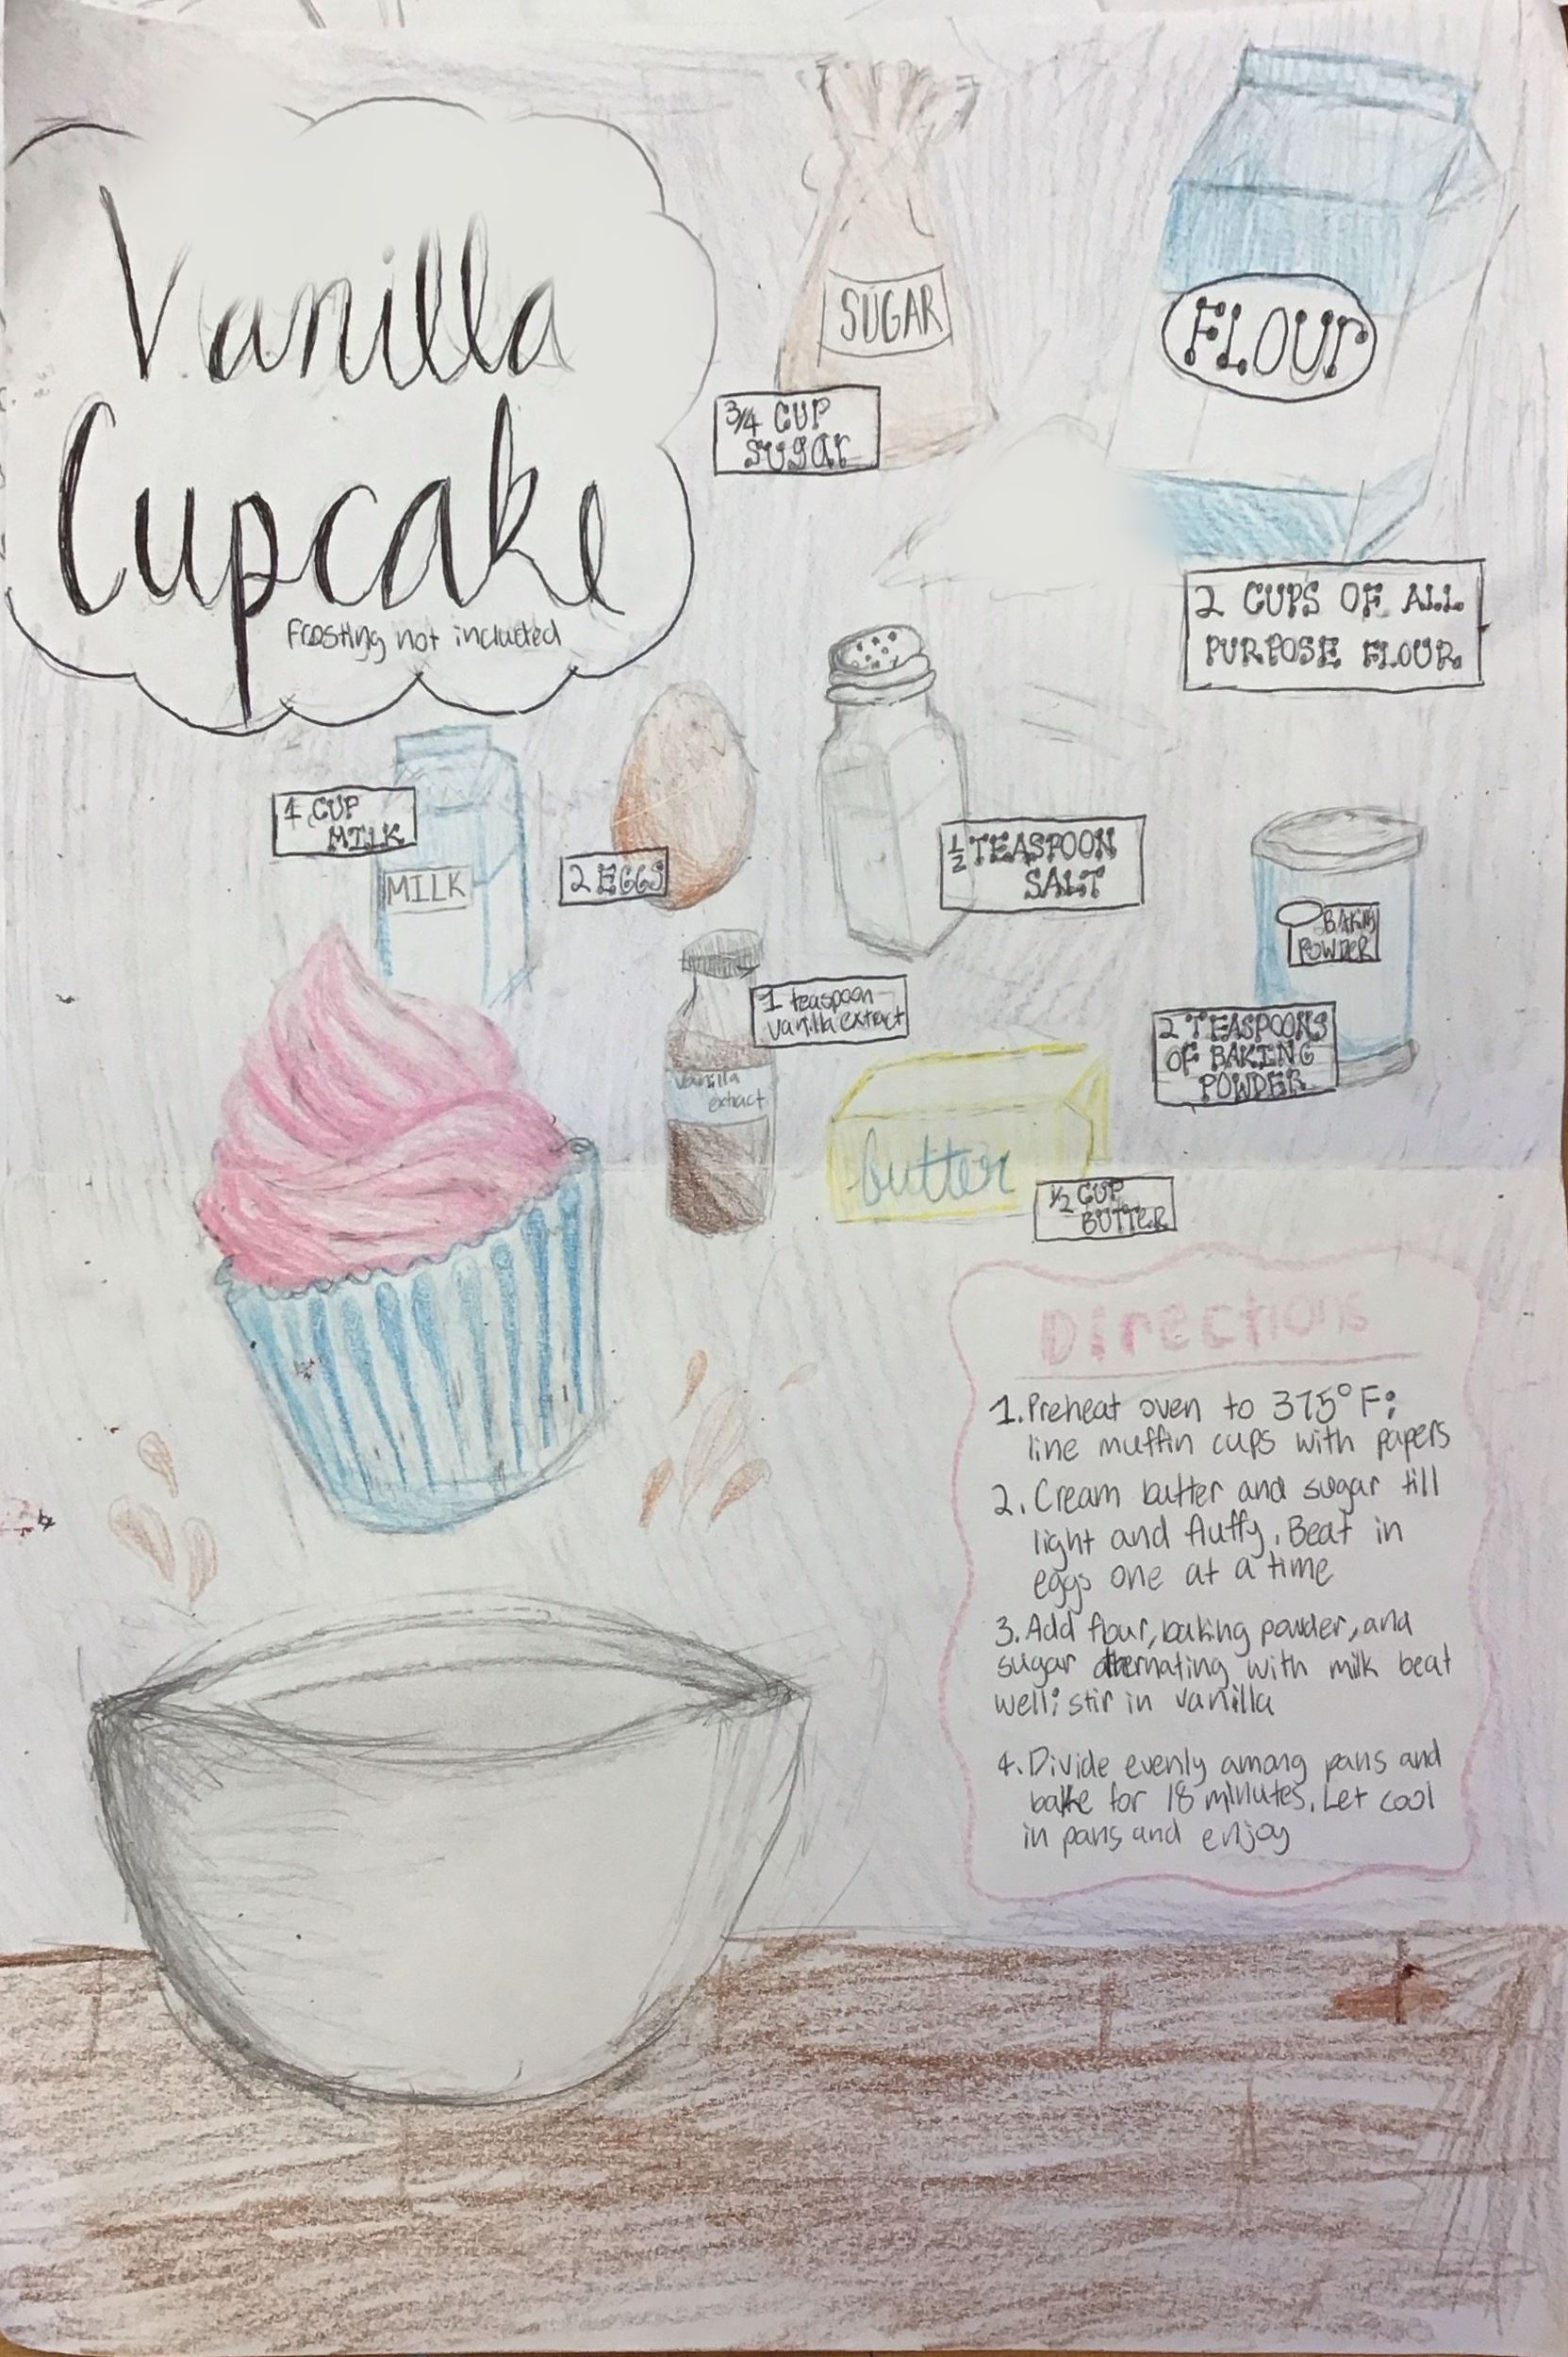 Vanilla
Cupcake
Frosting not included
SUGAR
3/4 CUP
SUGAR
FLOUR
2 CUPS OF ALL
PURPOSE FLOUR
1 CUP
MILK
MILK
2 EGGS
1/2 TEASPOON
SALT
BAKING
POWDER
2 TEASPOONS
OF BAKING
POWDER
1 teaspoon
vanilla extract
Vanilla
extract
butter
1/2 CUP
BUTTER
Directions
1. Preheat oven to 375°F;
line muffin cups with papers
2. Cream butter and sugar till
light and fluffy. Beat in
eggs one at a time
3. Add flour, baking powder, and
sugar alternating with milk beat
well; stir in vanilla
4. Divide evenly among pans and
bake for 18 minutes. Let cool
in pans and enjoy